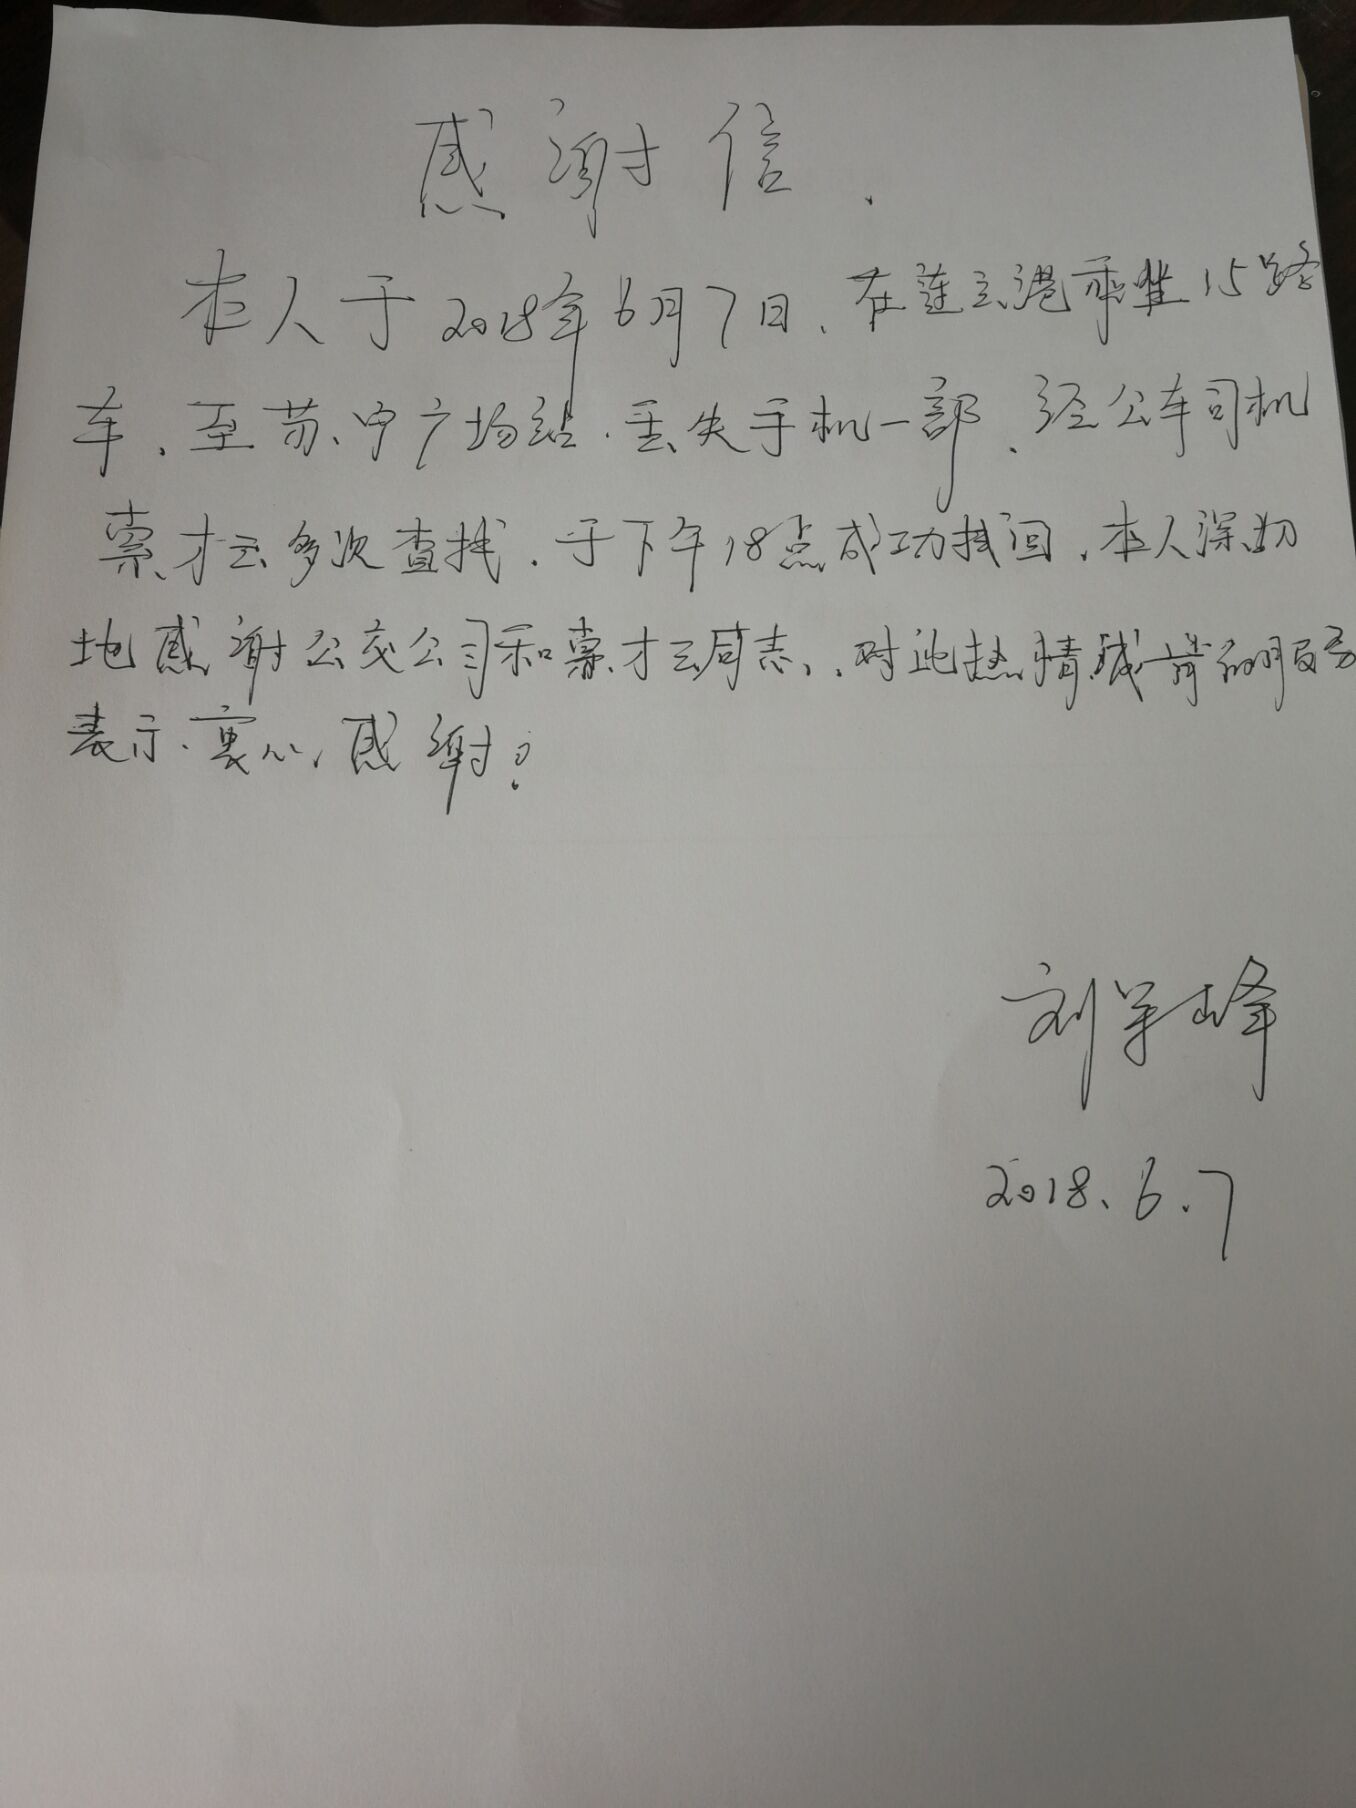 感谢信.
本人于2018年6月7日、在连云港乘坐15路
车、至苏、宁广场站.丢失手机一部、经公车司机
才云多次查找.于下午18点成功找回、本人深切
地感谢公交公司和才云同志、对此热情、诚的服务
表示、衷心、感谢!
刘军峰
2018.6.7